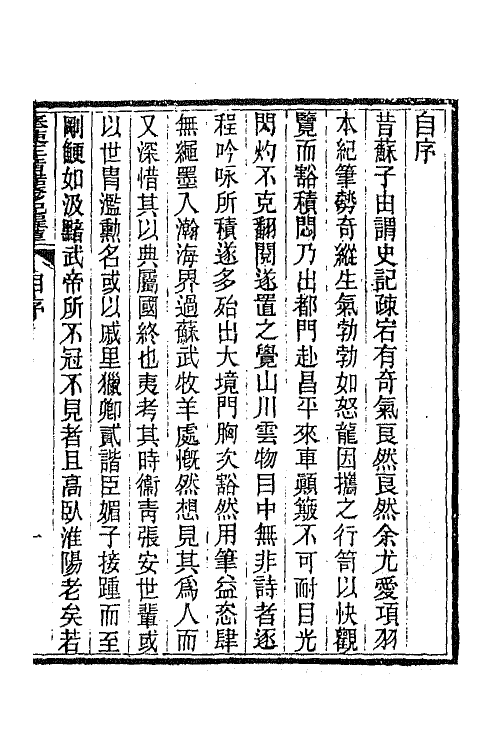 自序
昔蘇子由謂史記疎宕有奇氣良然良然余尤愛項羽
本紀筆勢奇縱生氣勃勃如怒龍因攜之行笥以快觀
覽而豁積悶乃出都門赴昌平來車顚簸不可耐目光
閃灼不克翻閱遂置之覺山川雲物目中無非詩者逐
程吟咏所積遂多殆出大境門胸次豁然用筆益恣肆
無繩墨入瀚海界過蘇武牧羊處慨然想見其爲人而
又深惜其以典屬國終也夷考其時衞青張安世輩或
以世胄濫勳名或以戚里獵卿貳諧臣媚子接踵而至
剛鯁如汲黯武帝所不冠不見者且高臥淮陽老矣若
自序
一